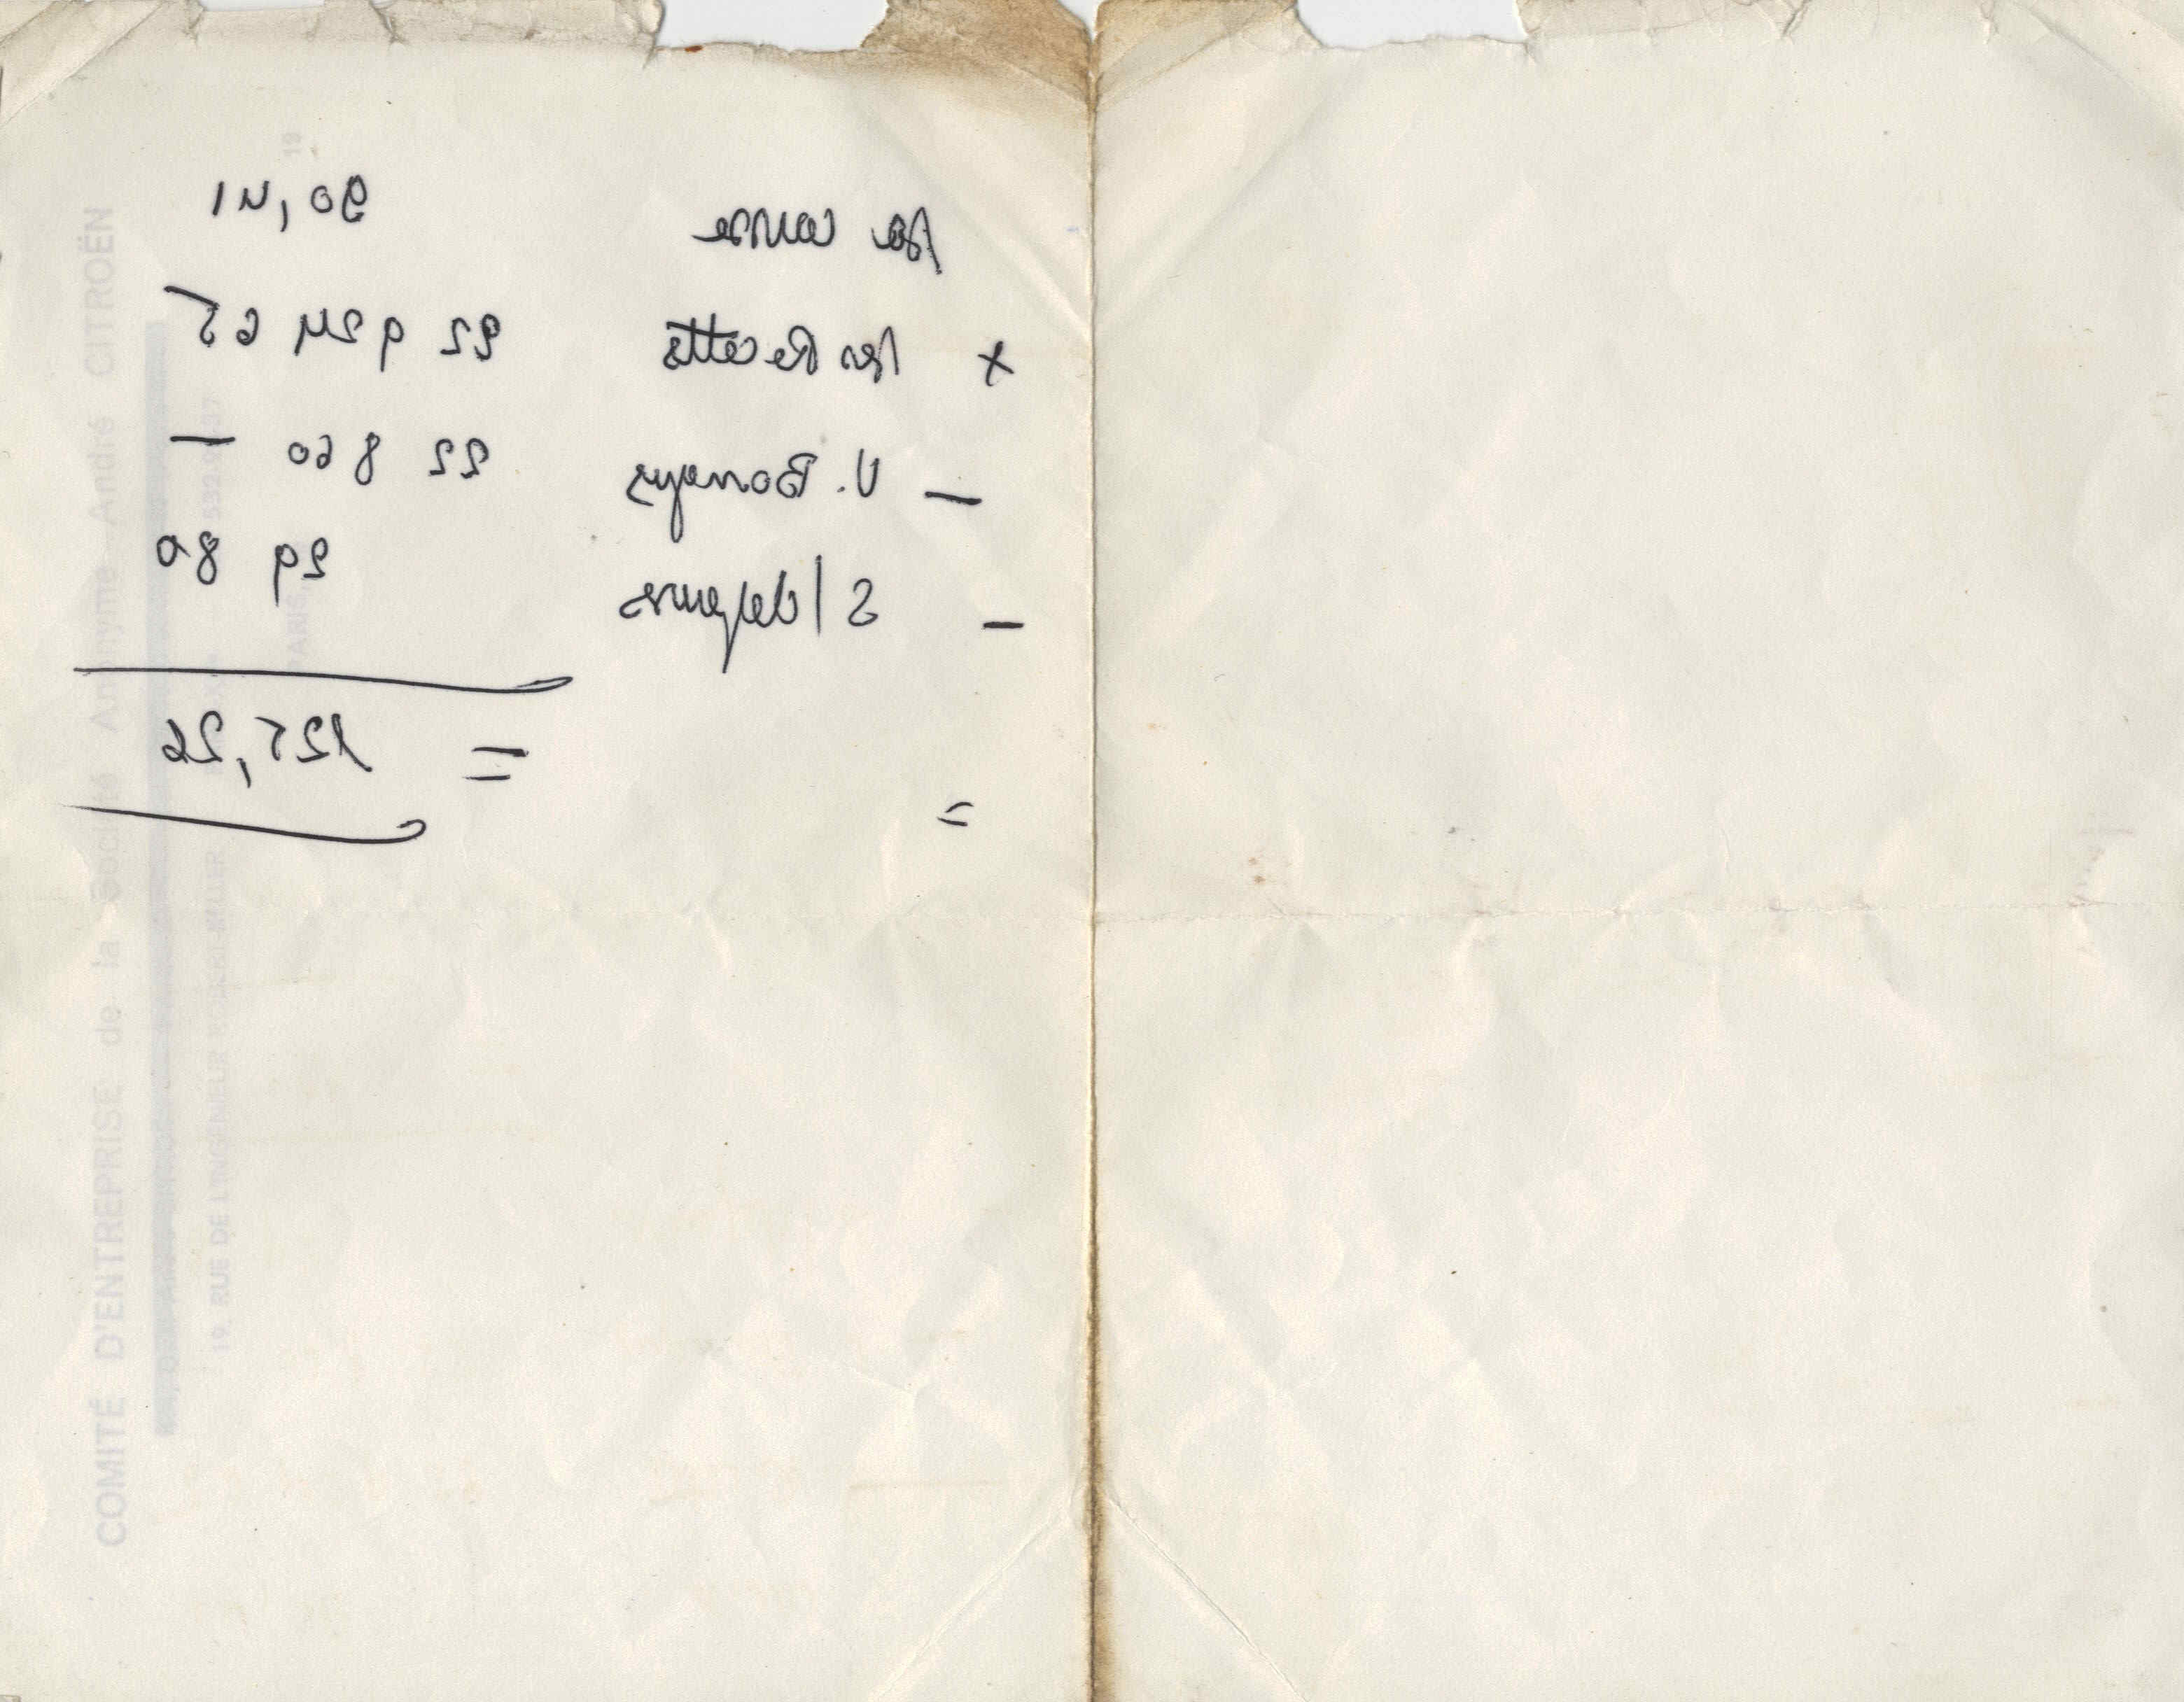 la caisse 90,41
+ les Recettes 22 924 65
— V. Banque 22 860 —
— S/dépenses 29 80
= = 125,26
COMITÉ D'ENTREPRISE de la Société Anonyme André CITROËN
19, RUE DE L'INGÉNIEUR ROBERT KELLER
PARIS 19